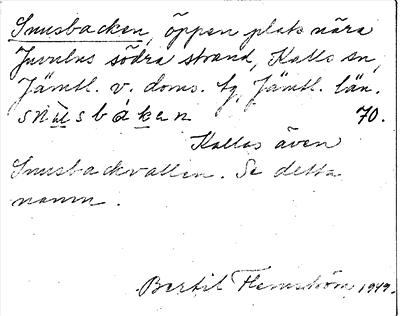 Snusbacken, öppen plats nära
Juvulns södra strand, Kalls sn,
Jämtl. v. doms. tg, Jämtl. län.
snùsbákɐn 70.
Kallas även
Snusbackvallen. Se detta
namn.
Bertil Flemström, 1949.